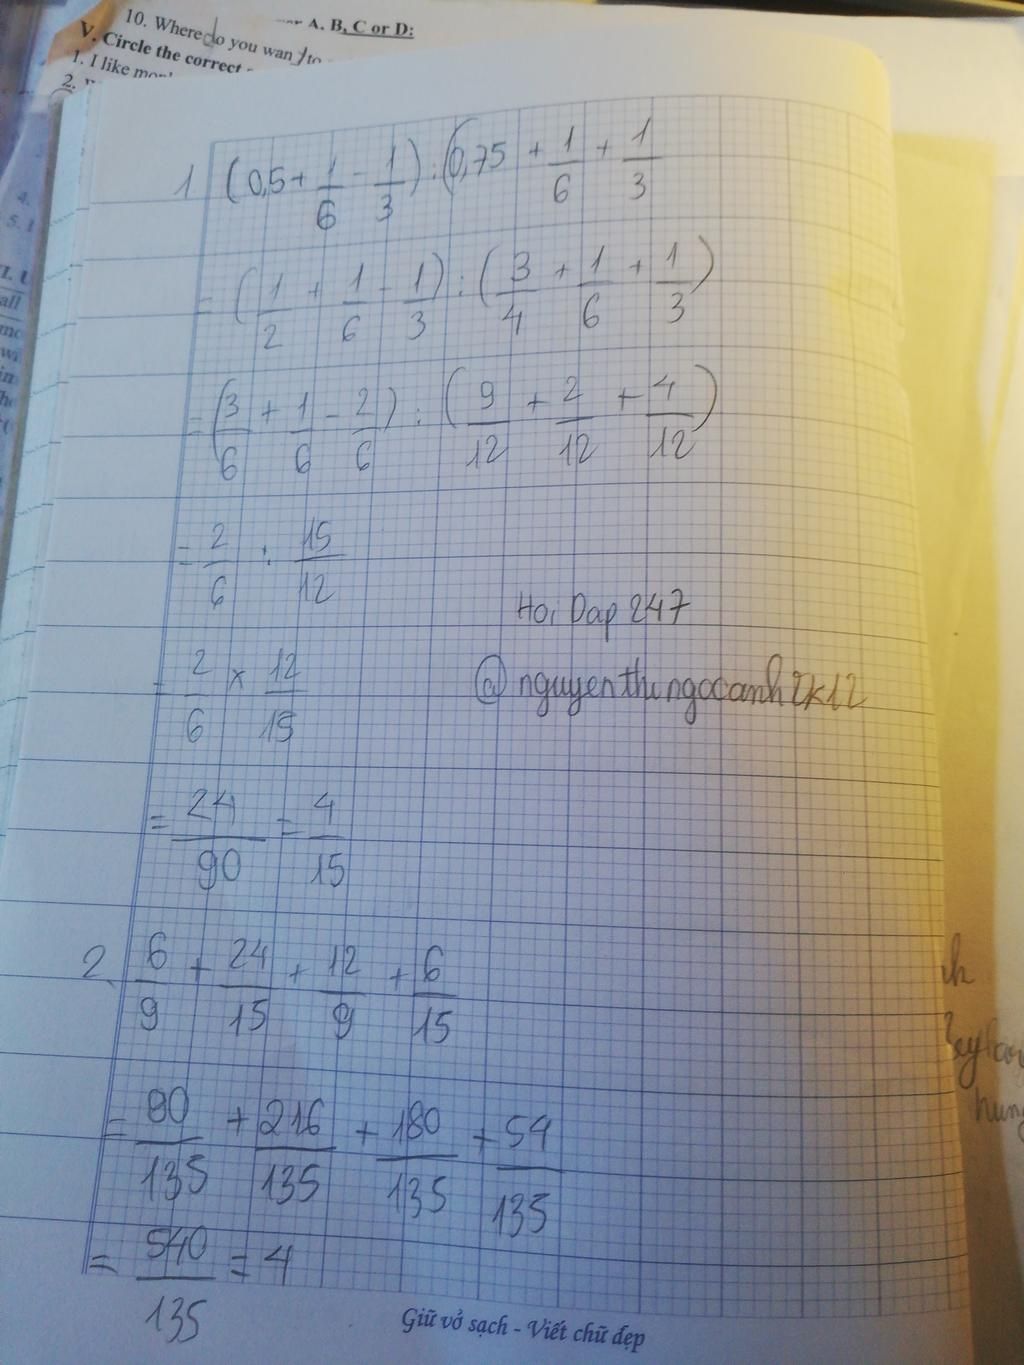 A, B, C or D:
10. Where do you want to
V. Circle the correct
1. I like
2.
1 (0,5 + 1/6 - 1/3) : (0,75 + 1/6 + 1/3
= (1/2 + 1/6 - 1/3) : (3/4 + 1/6 + 1/3)
= (3/6 + 1/6 - 2/6) : (9/12 + 2/12 + 4/12)
= 2/6 : 15/12
Hoi Dap 247
= 2/6 x 12/15
@nguyenthingocanh2k12
= 24/90 = 4/15
2, 6/9 + 24/15 + 12/9 + 6/15
= 90/135 + 216/135 + 180/135 + 54/135
= 540/135 = 4
Giữ vở sạch - Viết chữ đẹp